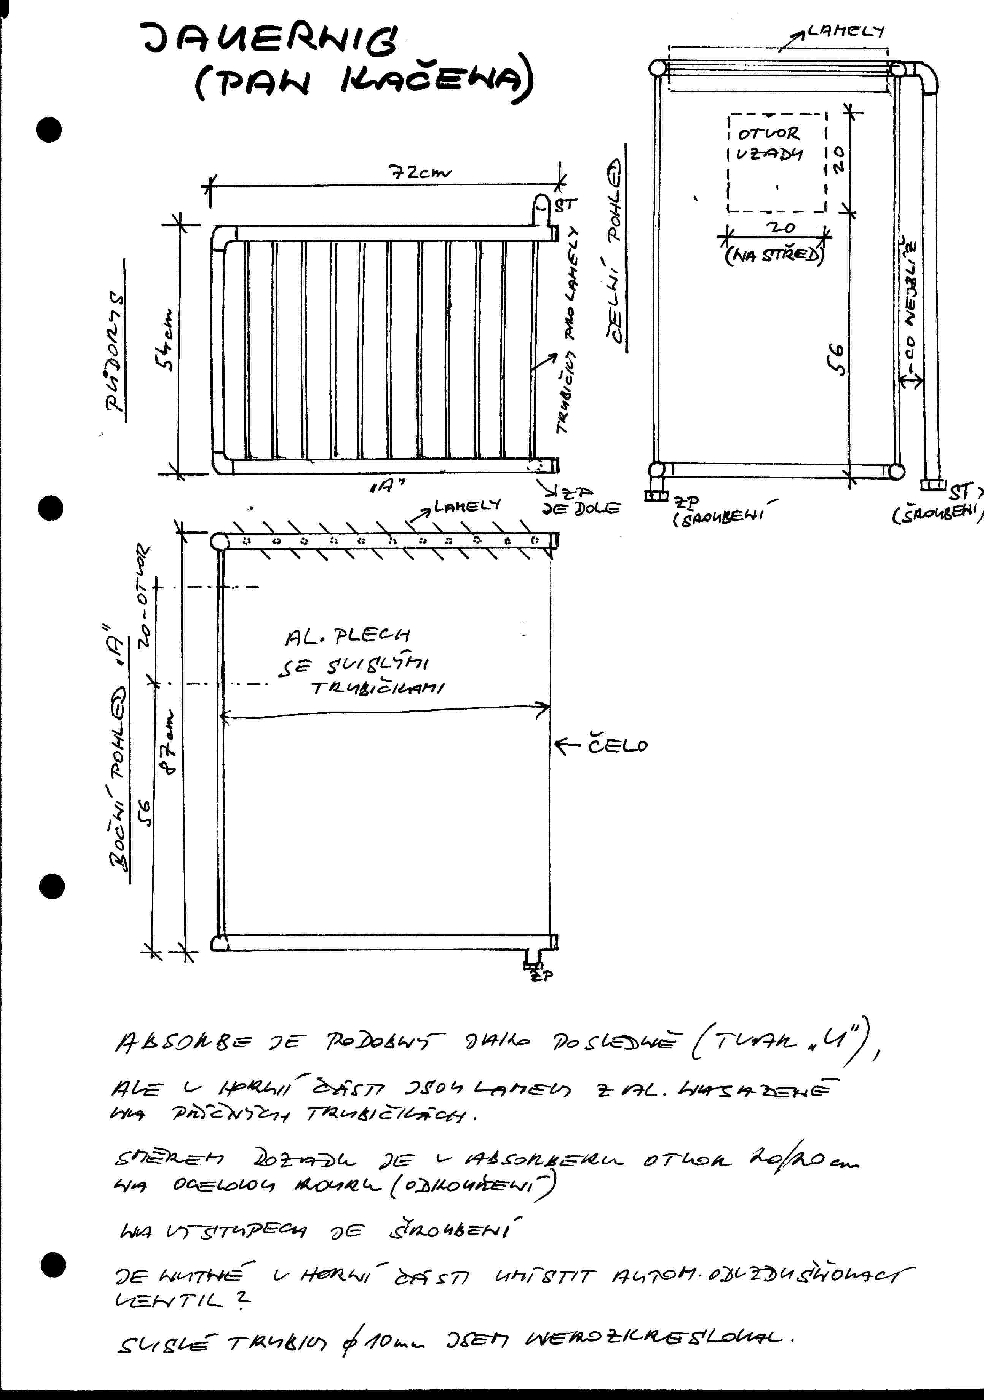 JAUERNIG
(PAN KAČENA)
LAMELY
OTVOR
VZADU
20
20
(NA STŘED)
CO NEJBLÍŽ
56
ČELNÍ POHLED
ZP
(ŠROUBENÍ
ST
(ŠROUBENÍ)
72cm
ST
54cm
PŮDORYS
TRUBIČKY PRO LAMELY
"A"
ZP
JE DOLE
LAMELY
20-OTVOR
BOČNÍ POHLED „A"
87cm
56
AL. PLECH
SE SVISLÝMI
TRUBIČKAMI
ČELO
ZP
ABSORBE JE PODOBNÝ JAKO POSLEDNĚ (TVAR „U"),
ALE V HORNÍ ČÁSTI JSOU LAMELY Z AL. NASAZENÉ
NA PŘÍČNÝCH TRUBIČKÁCH.
SMĚREM DOZADU JE V ABSORBERU OTVOR 20/20cm
NA OCELOVOU ROURU (ODKOUŘENÍ)
NA VÝSTUPECH JE ŠROUBENÍ
JE NUTNÉ V HORNÍ ČÁSTI UMÍSTIT AUTOM. ODVZDUŠŇOVACÍ
VENTIL?
SVISLÉ TRUBKY ϕ 10mm JSEM NEROZKRESLOVAL.